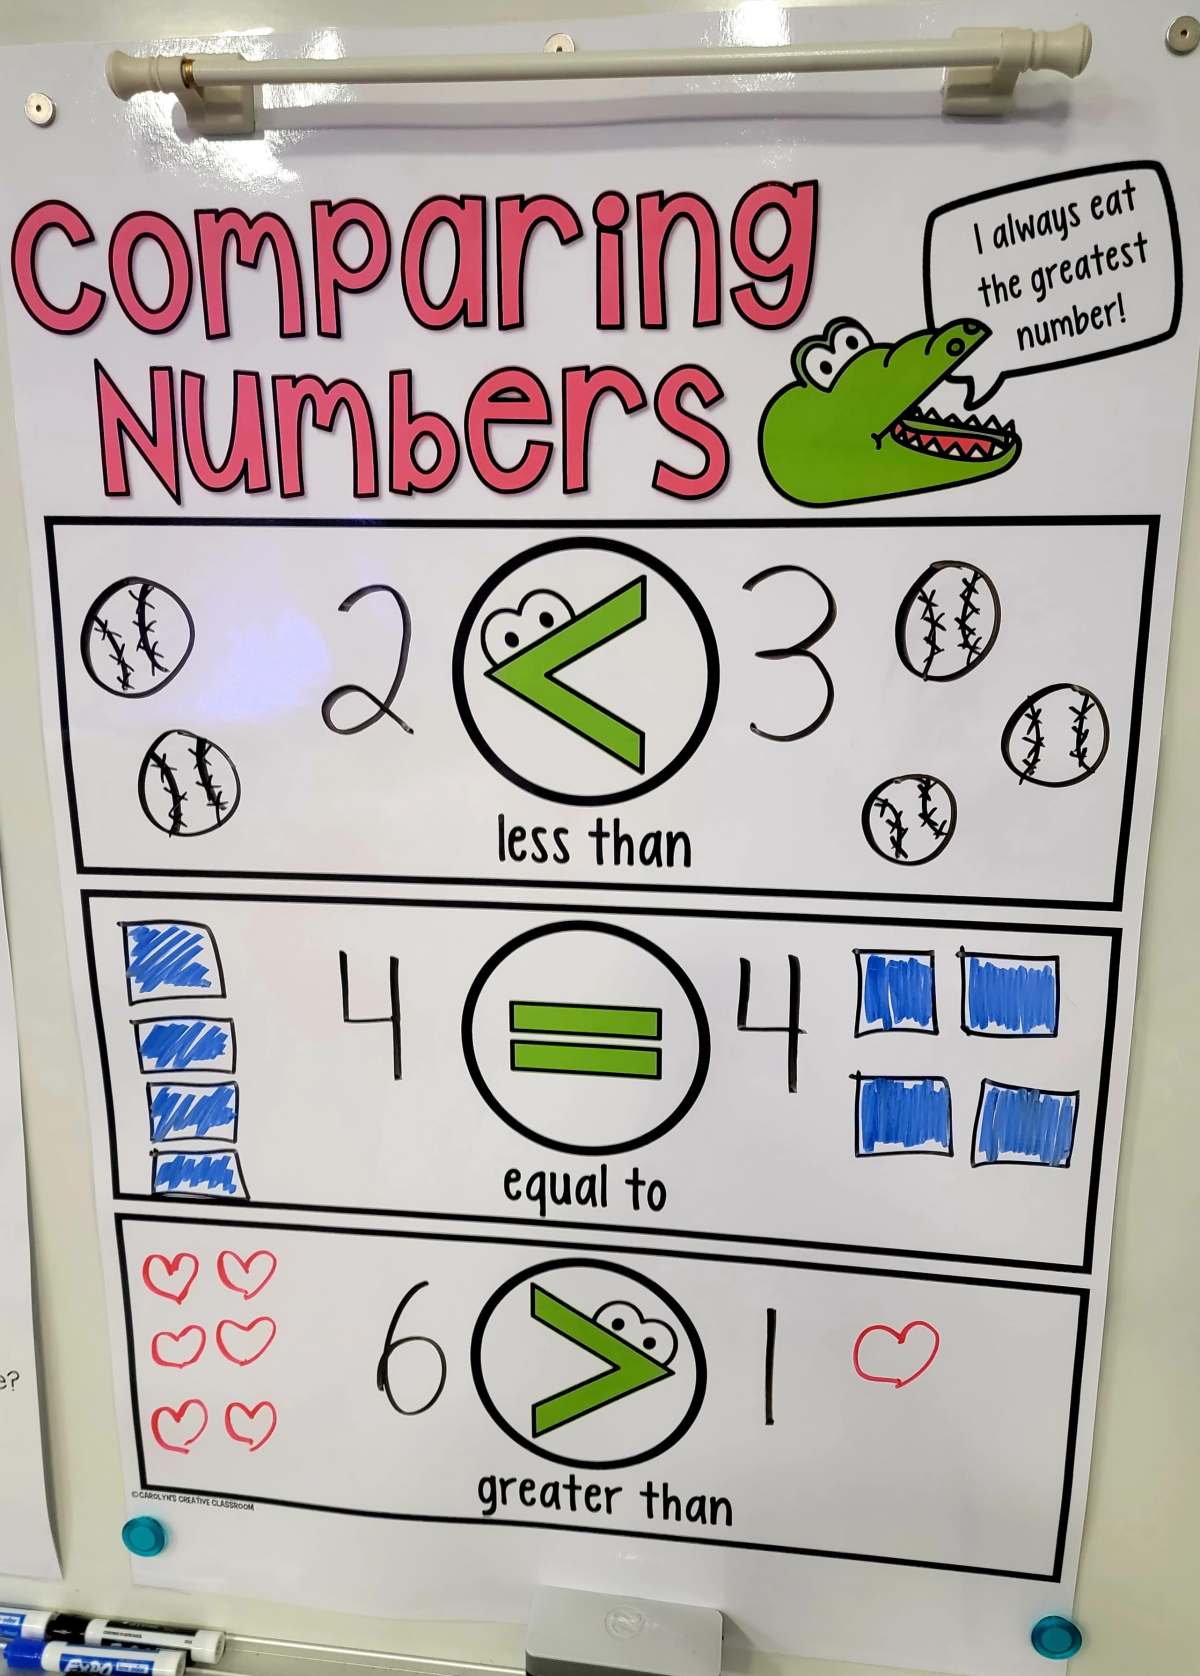 Comparing
Numbers
I always eat
the greatest
number!
2 < 3
less than
4 = 4
equal to
6 > 1
greater than
©CAROLYN'S CREATIVE CLASSROOM
e?
EXPO